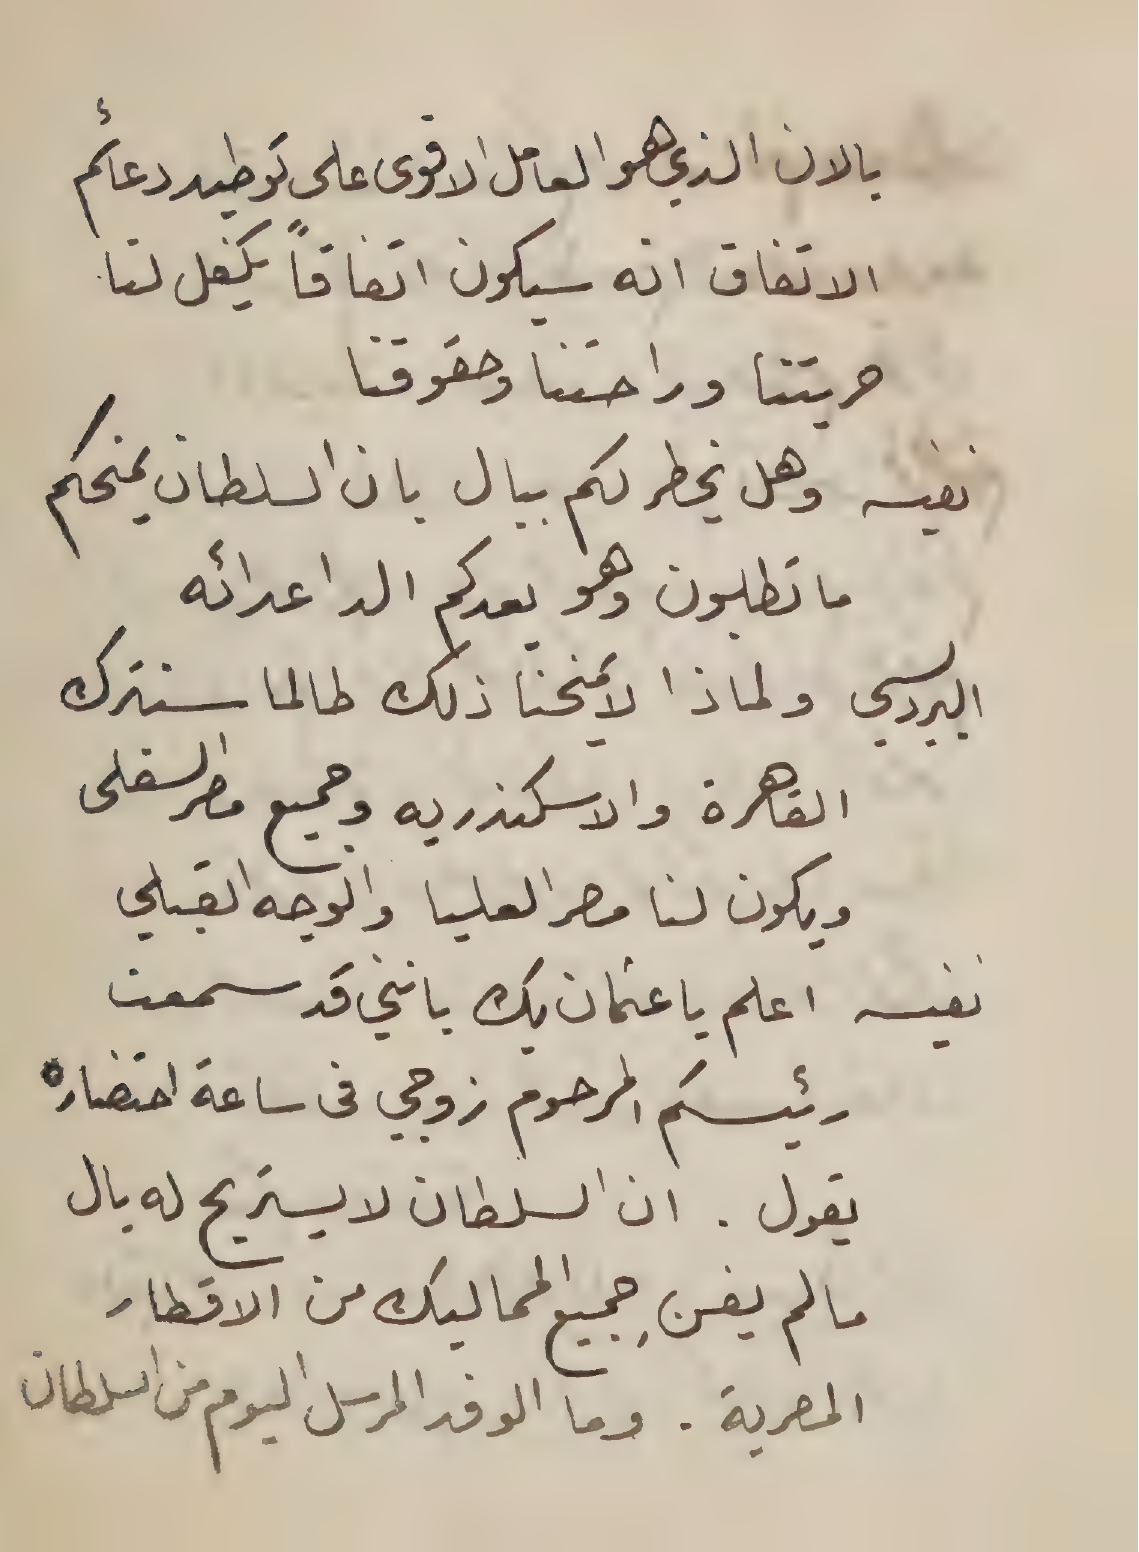 بالان الذي هو العامل الاقوى على توطيد دعائم
الاتفاق انه سيكون اتفاقاً يكفل لنا
حريتنا وراحتنا وحقوقنا
نفيسه وهل يخطر لكم ببال بان السلطان يمنحكم
ما تطلبون وهو يعدكم الد اعدائه
البرديسي ولماذا لا يمنحنا ذلك طالما سنترك
القاهرة والاسكندريه وجميع مصر السفلى
ويكون لنا مصر العليا والوجه القبلي
نفيسه اعلم يا عثمان بك بانني قد سمعت
رئيسكم المرحوم زوجي فى ساعة احتضاره
يقول . ان السلطان لا يستريح له بال
مالم يفنِ جميع المماليك من الاقطار
المصرية . وما الوفد المرسل اليوم من السلطان